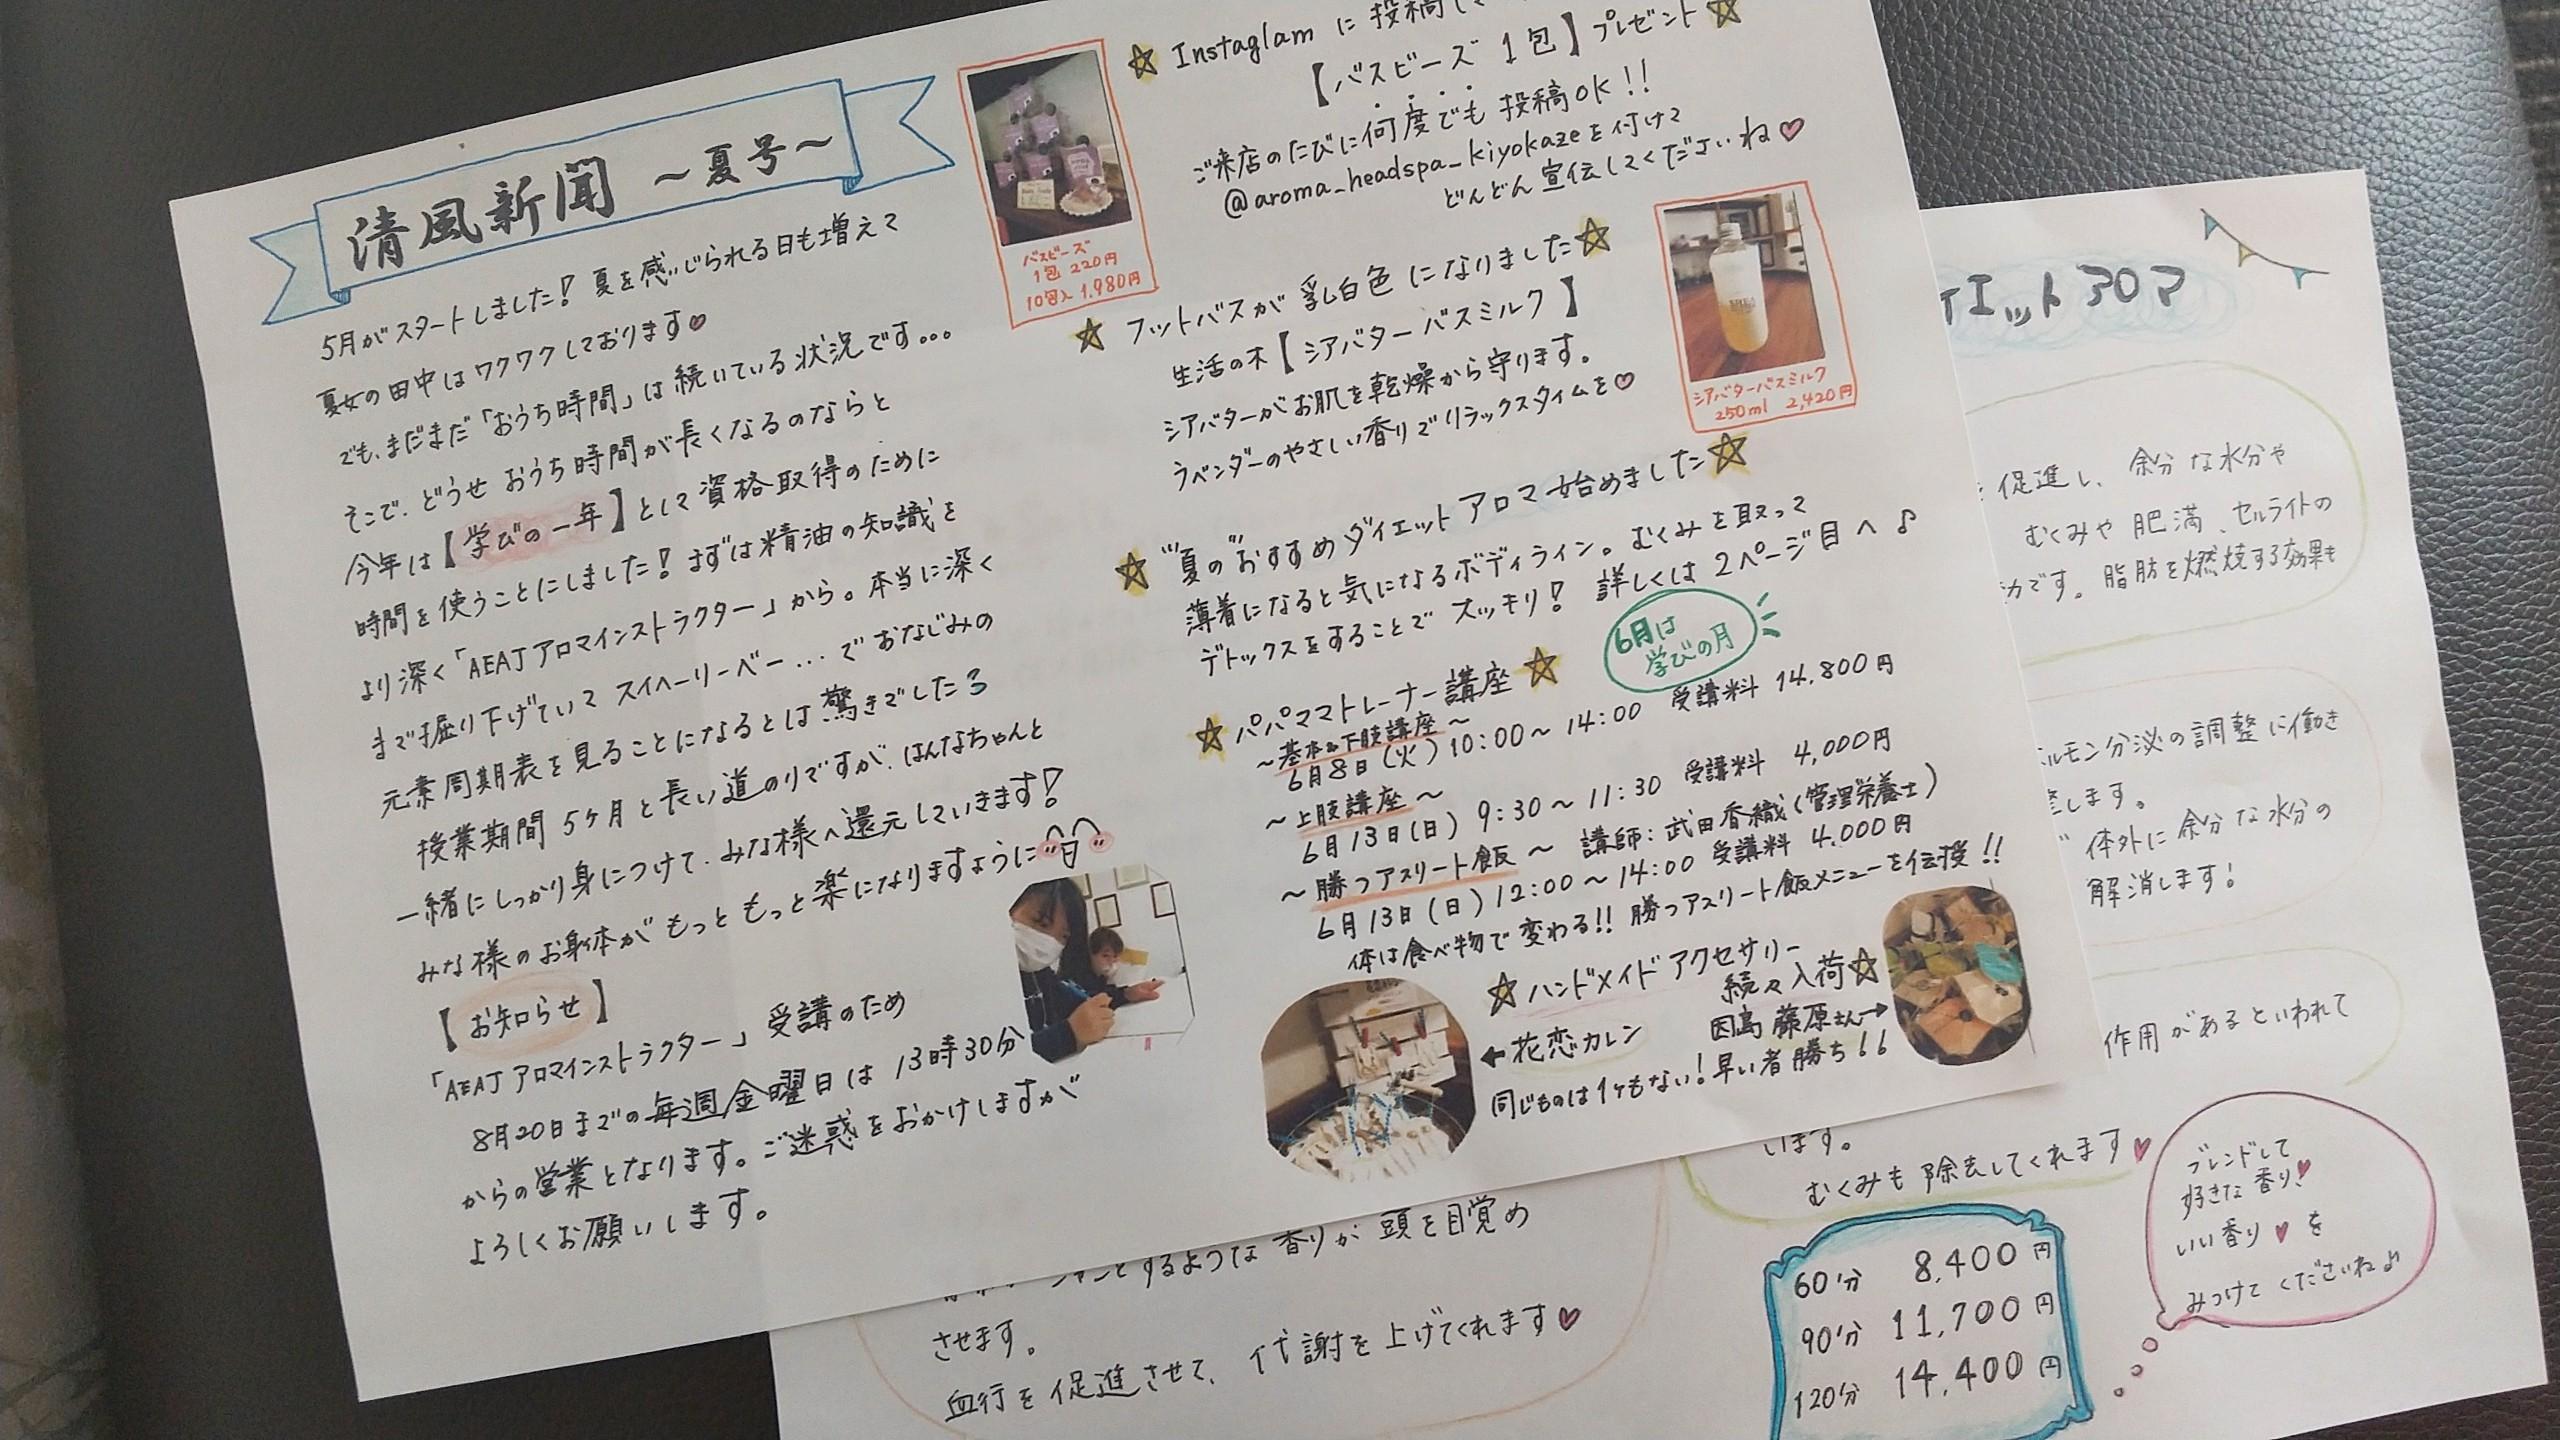 清風新聞 ～夏号～
5月がスタートしました! 夏を感じられる日も増えて
夏女の田中はワクワクしております♡
でも、まだまだ「おうち時間」は続いている状況です。。。
そこで、どうせ おうち時間が長くなるのならと
今年は【学びの一年】として資格取得のために
時間を使うことにしました! まずは精油の知識を
より深く「AEAJアロマインストラクター」から。本当に深く
まで掘り下げていて スイヘーリーベー…でおなじみの
元素周期表を見ることになるとは驚きでした
授業期間 5ヶ月と長い道のりですが、はんなちゃんと
一緒にしっかり身につけて、みな様へ還元していきます!
みな様のお身体がもっともっと楽になりますように
【お知らせ】
「AEAJアロマインストラクター」受講のため
8月20日までの毎週金曜日は 13時30分
からの営業となります。ご迷惑をおかけしますが
よろしくお願いします。
☆ Instaglam に 投稿して
【バスビーズ 1包】プレゼント☆
ご来店のたびに何度でも 投稿OK!!
@aroma_headspa_kiyokazeを付けて
どんどん宣伝してくださいね♡
バスビーズ
1包 220円
10包入 1,980円
☆ フットバスが 乳白色 になりました☆
生活の木【シアバター バスミルク】
シアバターがお肌を乾燥から守ります。
ラベンダーのやさしい香りでリラックスタイムを♡
シアバターバスミルク
250ml 2,420円
☆ "夏の"おすすめダイエットアロマ 始めました☆
薄着になると気になるボディライン。むくみを取って
デトックスをすることで スッキリ! 詳しくは 2ページ目へ♪
6月は
学びの月
☆ パパママトレーナー講座☆
～基本の下肢講座～
6月8日(火) 10:00～14:00 受講料 14,800円
～上肢講座～
6月13日(日) 9:30～11:30 受講料 4,000円
～勝つアスリート飯～ 講師:武田香織(管理栄養士)
6月13日(日) 12:00～14:00 受講料 4,000円
体は食べ物で変わる!! 勝つアスリート飯メニューを伝授!!
☆ハンドメイドアクセサリー
続々入荷☆
←花恋カレン
因島 藤原さん→
同じものは1ケもない! 早い者勝ち!!
イエットアロマ
促進し、余分な水分や
むくみや 肥満、セルライトの
です。脂肪を燃焼する効果も
ルモン分泌の調整に働き
します。
体外に余分な水分の
解消します!
作用があるといわれて
います。
むくみも除去してくれます♡
するような香りが 頭を目覚め
させます。
血行を促進させて、代謝を上げてくれます♡
60分 8,400円
90分 11,700円
120分 14,400円
ブレンドして
好きな香り♡
いい香り♡を
みつけてくださいね♪